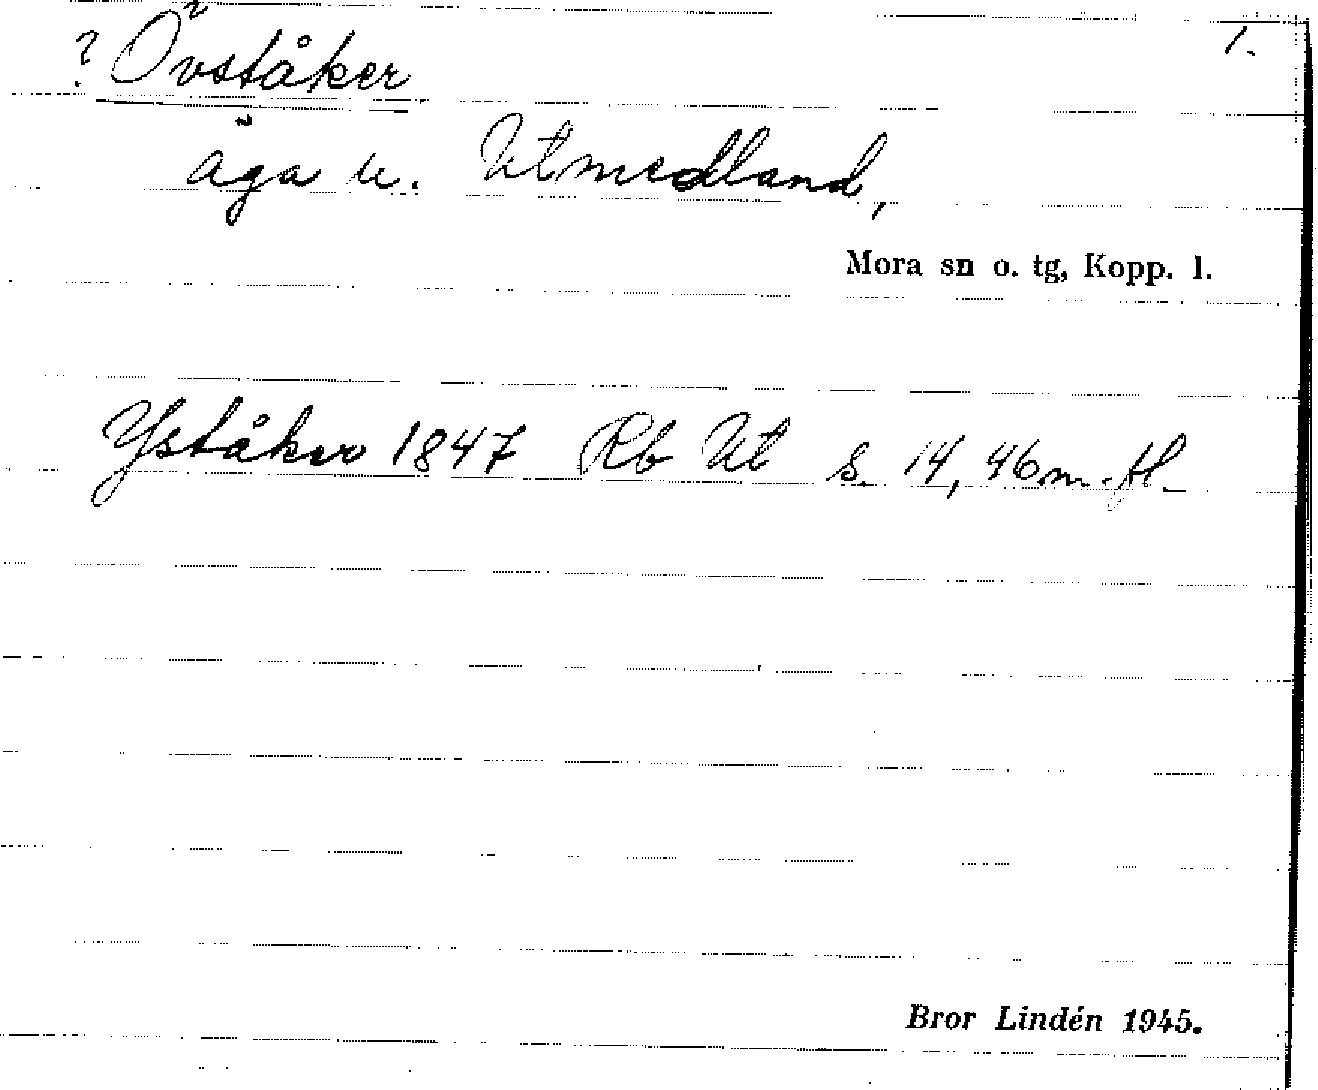 ? Övståker 1.
äga u. Utmedland,
Mora sn o. tg, Kopp. l.
Yståker 1847 Rb Ut s. 14, 46 m. fl.
Bror Lindén 1945.